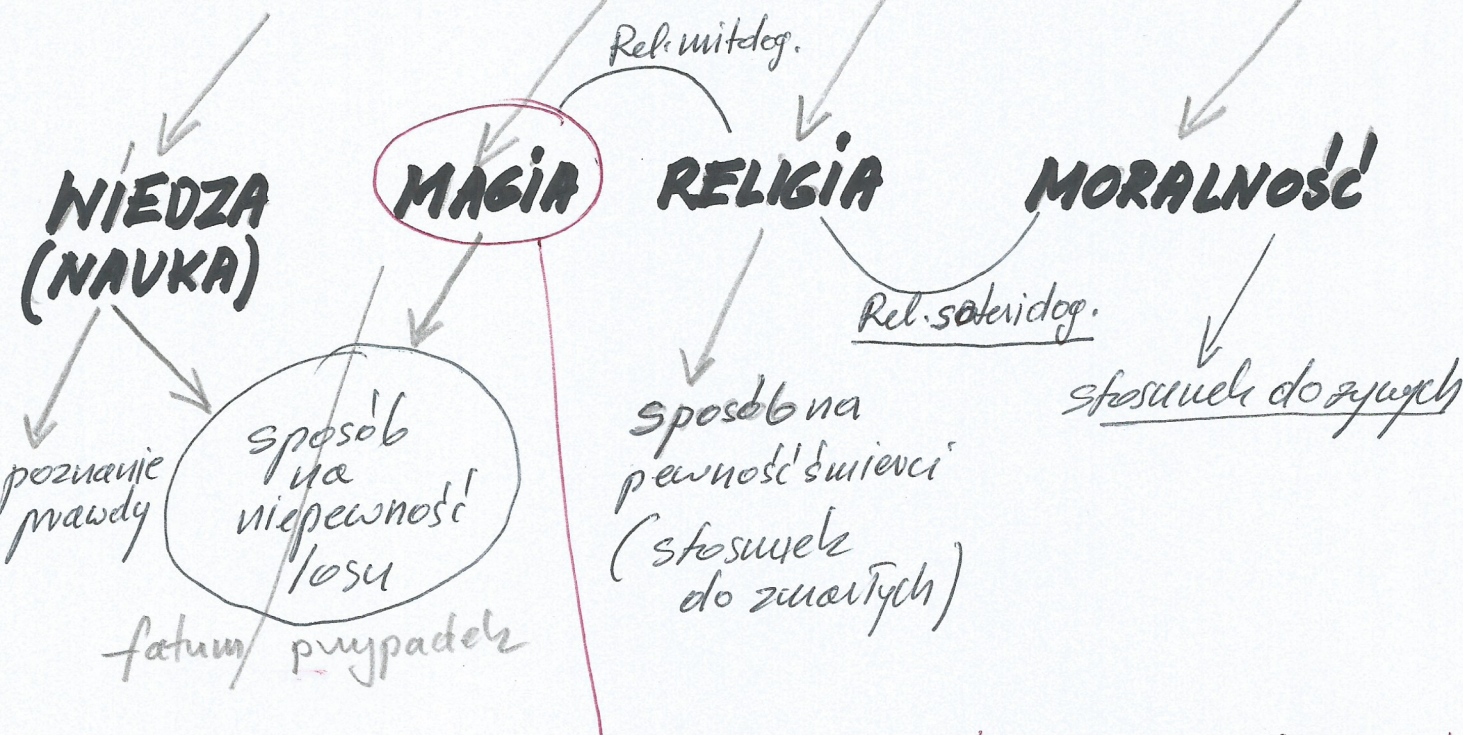 Rel. mitolog.
WIEDZA
(NAUKA)
MAGIA
RELIGIA
MORALNOŚĆ
Rel. soteriolog.
poznanie
prawdy
sposób
na
niepewność
losu
fatum / przypadek
sposób na
pewność śmierci
(stosunek
do zmarłych)
stosunek do żywych